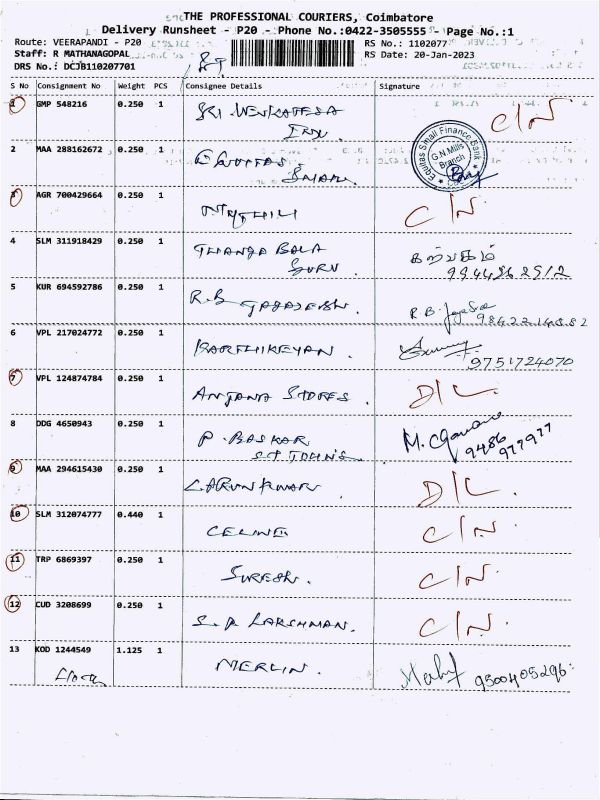 THE PROFESSIONAL COURIERS, Coimbatore
Delivery Runsheet - P20 - Phone No.:0422-3505555 - Page No.:1
Route: VEERAPANDI - P20 RS No.: 1102077
Staff: R MATHANAGOPAL RS Date: 20-Jan-2023
DRS No.: DCJB110207701
S No Consignment No Weight PCS Consignee Details Signature
1 GMP 548216 0.250 1 SRI VENKATESA C/N
2 MAA 288162672 0.250 1
Equitas Small Finance Bank
G.N.Mills
Branch
3 AGR 700429664 0.250 1 MYTHILI C/N
4 SLM 311918429 0.250 1 THANGA BALA கற்பகம்
GURU 9944862512
5 KUR 694592786 0.250 1 R.B R.B.
6 VPL 217024772 0.250 1 KARTHIKEYAN.
9751724070
7 VPL 124874784 0.250 1 ANJANA STORES. D/L
8 DDG 4650943 0.250 1 P. BASKAR M.
ST JOHNS 9486 977977
9 MAA 294615430 0.250 1 D/L.
10 SLM 312074777 0.440 1 CELINE C/N.
11 TRP 6869397 0.250 1 SURESH. C/N.
12 CUD 3208699 0.250 1 LAKSHMAN. C/N.
13 KOD 1244549 1.125 1 MERLIN. 9500405296